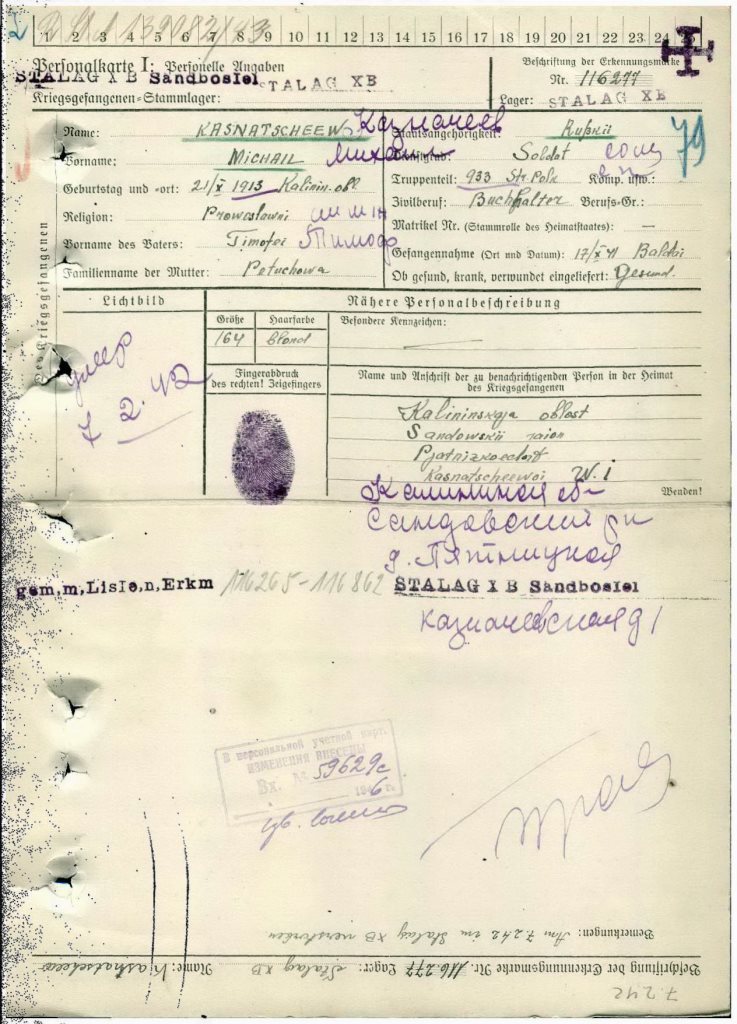 1 2 3 4 5 6 7 8 9 10 11 12 13 14 15 16 17 18 19 20 21 22 23 24 25
Personalkarte I: Personelle Angaben
Beschriftung der Erkennungsmarke
STALAG X B Sandbostel STALAG XB
Nr. 116277
Kriegsgefangenen-Stammlager:
Lager: STALAG XB
Des Kriegsgefangenen
Name: KASNATSCHEEW Казначеев
Staatsangehörigkeit: Rußkii
79
Vorname: MICHAIL Михаил
Dienstgrad: Soldat
Geburtstag und -ort: 21/X 1913 Kalinin. obl.
Truppenteil: 933 Str. Polk Komp. usw.:
Religion: Prawoslawni
Zivilberuf: Buchhalter Berufs-Gr.:
Vorname des Vaters: Timofei Тимоф
Matrikel Nr. (Stammrolle des Heimatstaates): —
Gefangennahme (Ort und Datum): 17/X 41 Baldai
Familienname der Mutter: Petuchowa
Ob gesund, krank, verwundet eingeliefert: Gesund.
Lichtbild
Nähere Personalbeschreibung
Größe Haarfarbe Besondere Kennzeichen:
164 blond —
умер
7 2. 42
Fingerabdruck
des rechten! Zeigefingers
Name und Anschrift der zu benachrichtigenden Person in der Heimat
des Kriegsgefangenen
Kalininskaja oblast
Sandowskii raion
Kasnatscheewoi W. 1
Wenden!
Сандовский
д. Пятницкая
gem,m,Listen,Erkm 116265-116862 STALAG X B Sandbostel
В персональной учетной карт.
ИЗМЕНЕНИЯ ВНЕСЕНЫ
Вх. № 59629с
1946 г.
Bemerkungen: Am 7.2.42 im Stalag XB verstorben
Beschriftung der Erkennungsmarke Nr. 116.277 Lager: Stalag XB Name: Kasnatscheew
7.2.42